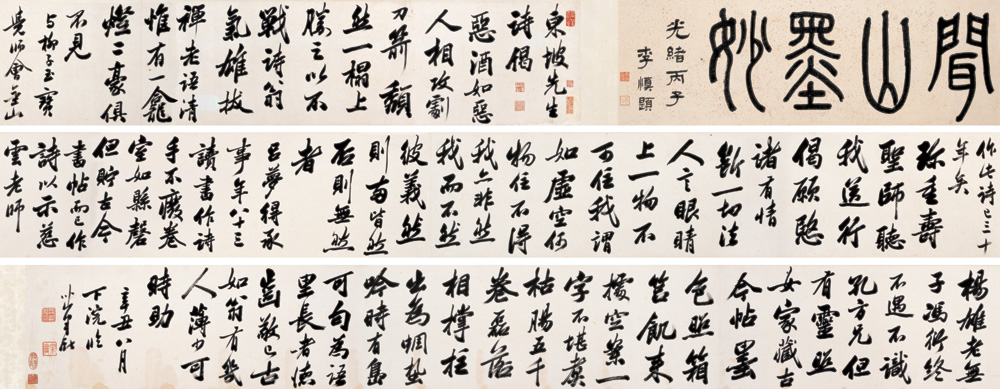 閒山墨妙
光緒丙子
李慎題
東坡先生
詩偈
惡酒如惡
人相攻劇
刀箭頹
然一榻上
勝之以不
戰詩翁
氣雄拔
禪老語清
惟有一龕
燈二豪俱
不見
与柳子玉寶
覺師會金山
作此詩已三十
年矣
珍重壽
聖師聽
我送行
偈願愍
諸有情
斷一切法
人言眼睛
上一物不
可住我謂
如虛空何
物住不得
我亦非然
我而不然
彼義然
則兩皆然
否則無然
者
呂夢得承
事年八十三
讀書作詩
手不廢卷
室如縣磬
但貯古今
書帖而已作
詩以示慈
雲老師
楊雄老無
子馮衍終
不遇不識
孔方兄但
有靈照
女家藏古
今帖墨
色照箱
筥飢來
據空案一
字不堪煑
枯腸五千
卷磊落
相撐拄
出為蜩蛩
吟時有島
可句為語
里長者德
齒敬已古
如翁有幾
人薄少可
時助
辛丑八月
下浣臨